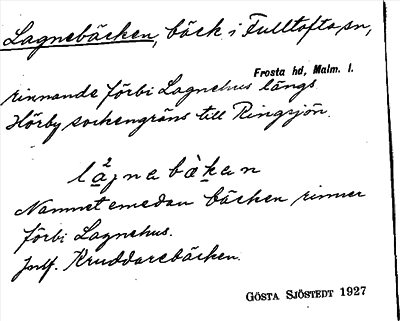 Lagnebäcken, bäck i Fulltofta sn,
Frosta hd, Malm. l.
rinnande förbi Lagnehus längs
Hörby sockengräns till Ringsjön.
Namnet emedan bäcken rinner
förbi Lagnehus.
Jmf. Kruddarebäcken.
GÖSTA SJÖSTEDT 1927